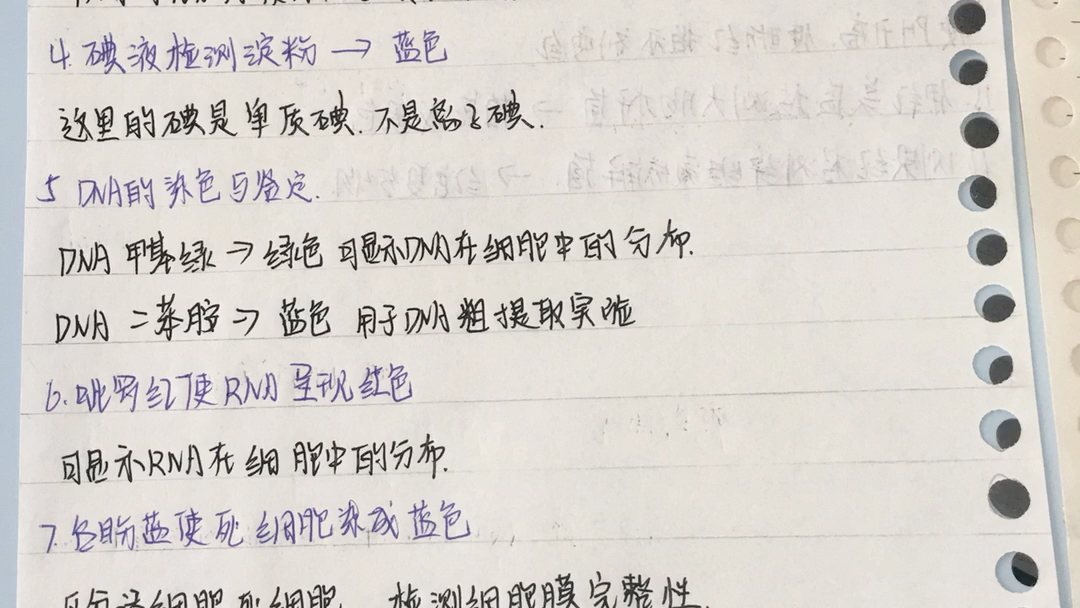 4. 碘液检测淀粉 → 蓝色
这里的碘是单质碘.不是离子碘.
5 DNA的染色与鉴定.
DNA 甲基绿 → 绿色 可显示DNA在细胞中的分布.
DNA 二苯胺 → 蓝色 用于DNA粗提取实验
6. 吡罗红使RNA呈现红色
可显示RNA在细胞中的分布.
7. 台盼蓝使死细胞染成蓝色
区分活细胞死细胞 检测细胞膜完整性.